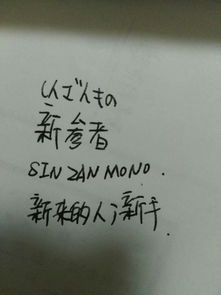 しんざんもの
新参者
SIN ZAN MONO.
新来的人；新手.